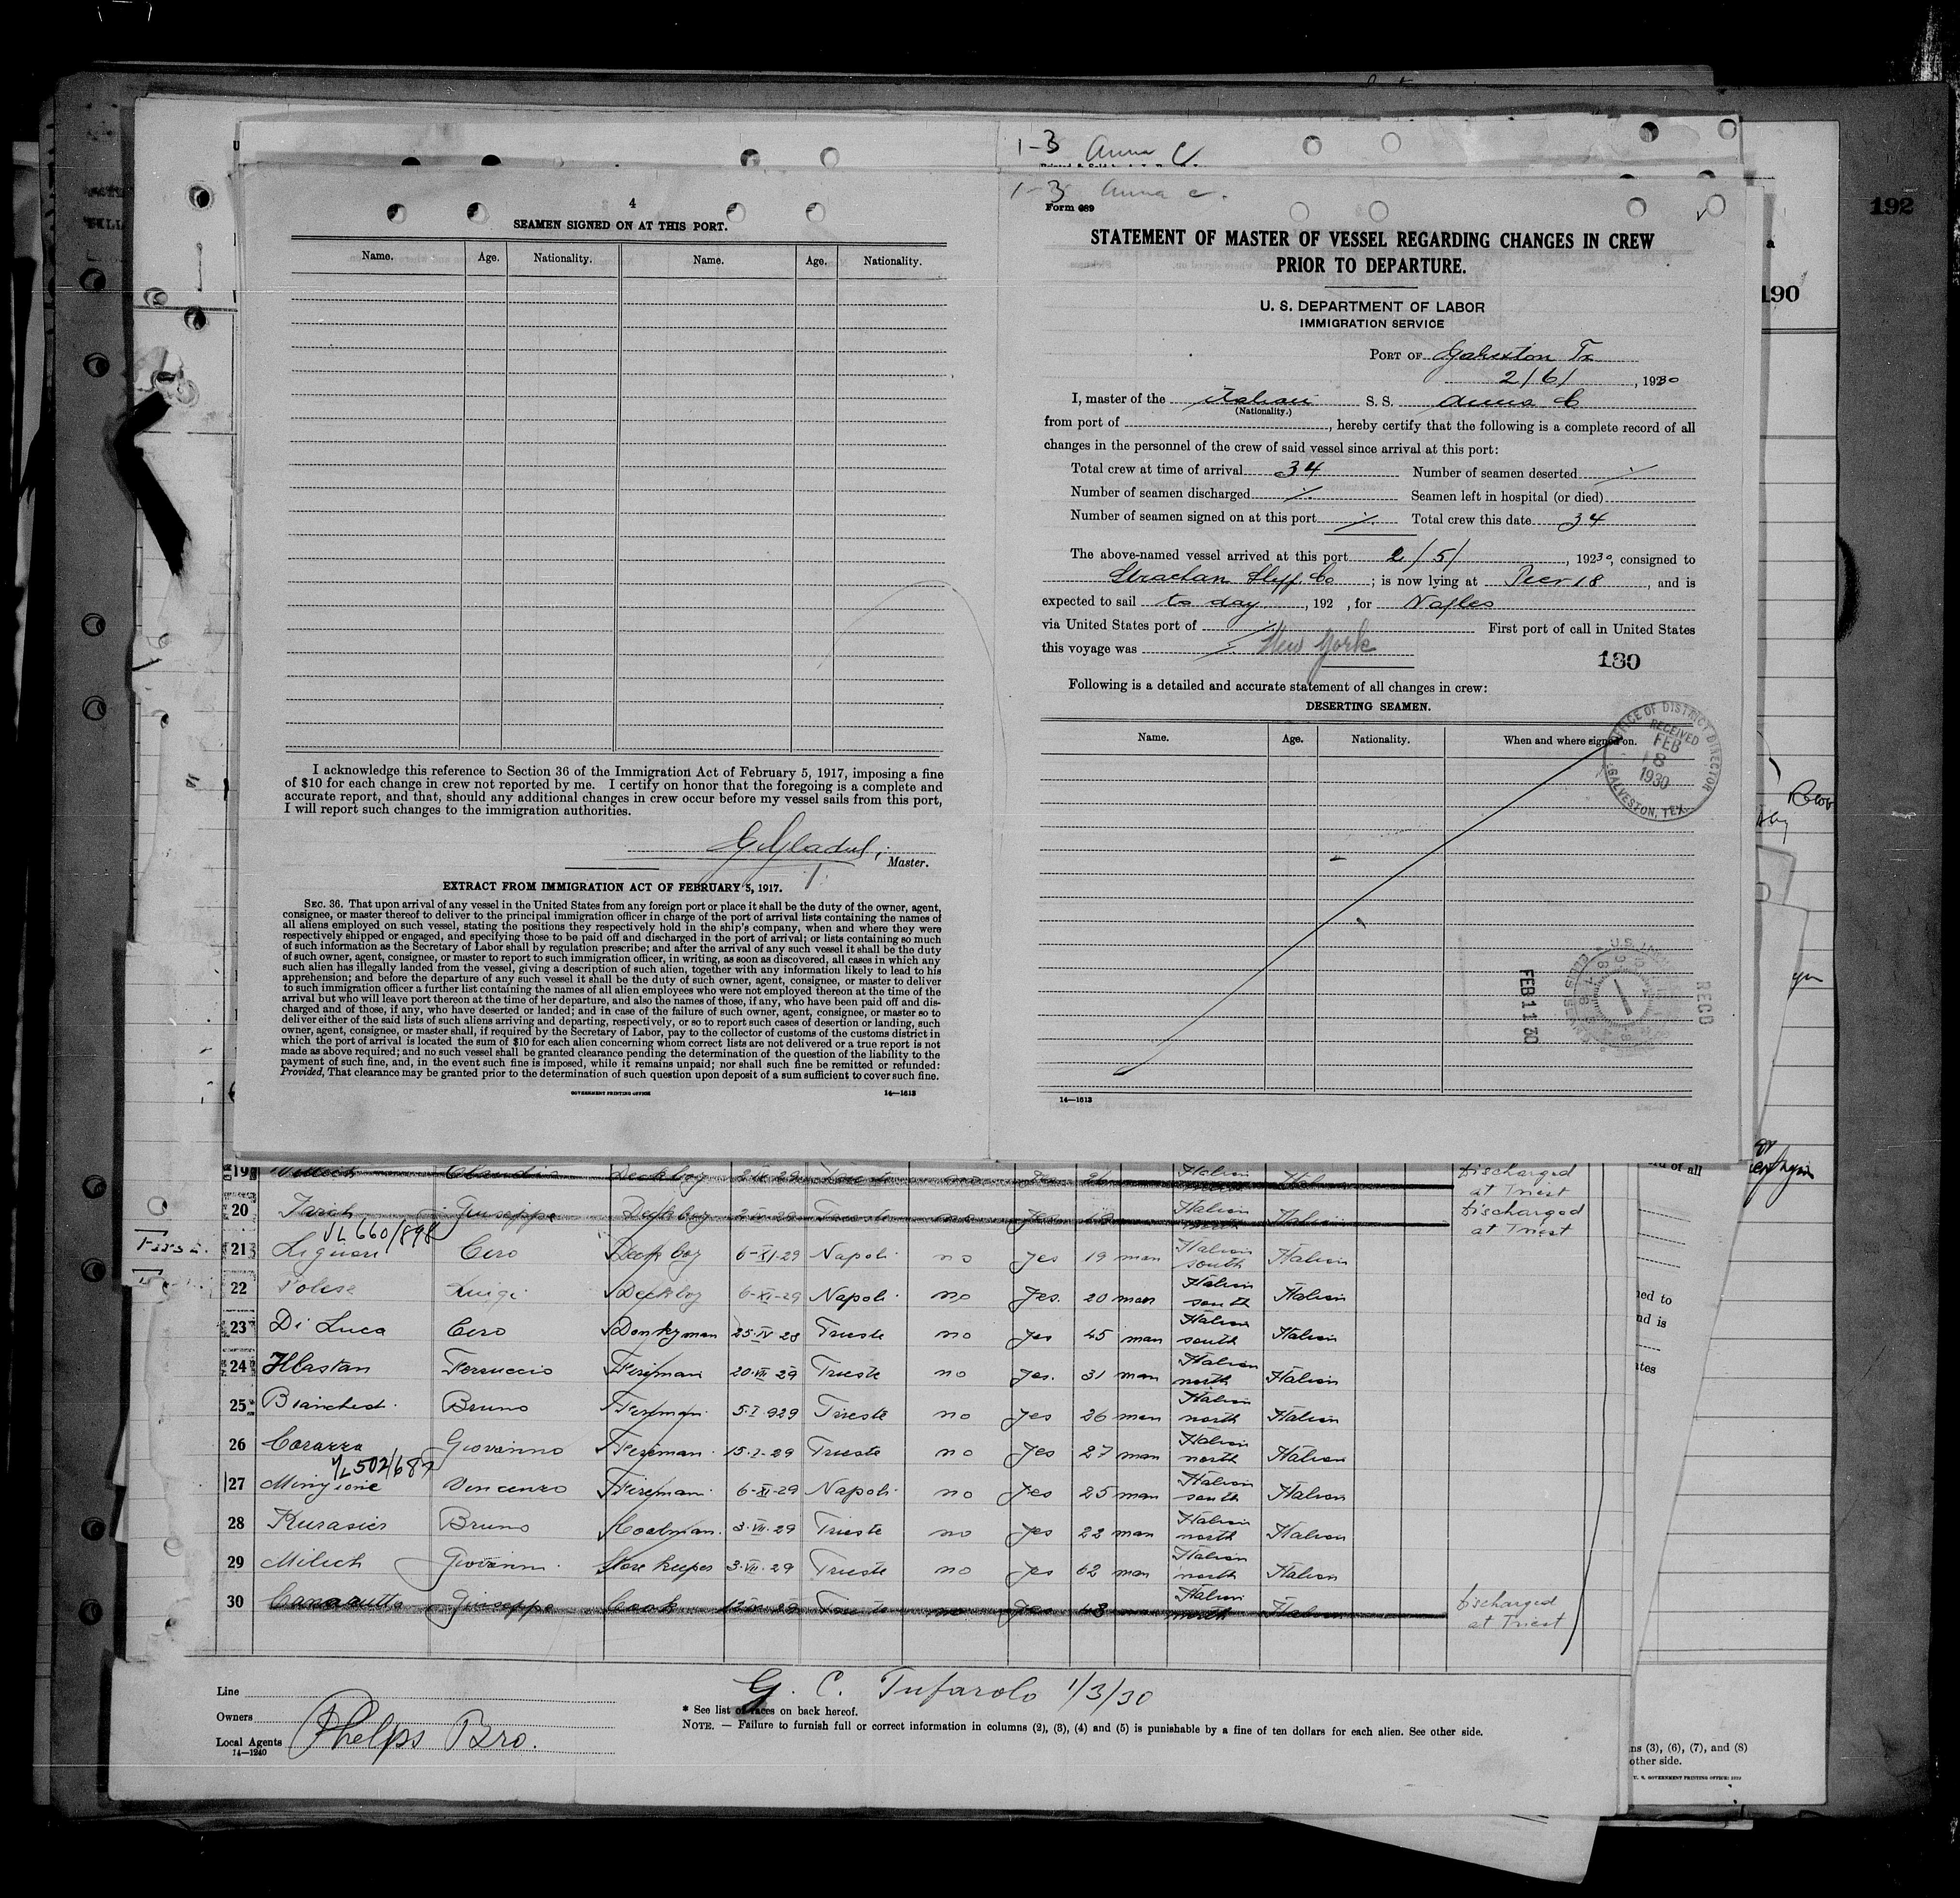 1-3 Anna C
192
190
4
SEAMEN SIGNED ON AT THIS PORT.
Name. Age. Nationality. Name. Age. Nationality.
I acknowledge this reference to Section 36 of the Immigration Act of February 5, 1917, imposing a fine
of $10 for each change in crew not reported by me. I certify on honor that the foregoing is a complete and
accurate report, and that, should any additional changes in crew occur before my vessel sails from this port,
I will report such changes to the immigration authorities.
Master.
EXTRACT FROM IMMIGRATION ACT OF FEBRUARY 5, 1917.
SEC. 36. That upon arrival of any vessel in the United States from any foreign port or place it shall be the duty of the owner, agent,
consignee, or master thereof to deliver to the principal immigration officer in charge of the port of arrival lists containing the names of
all aliens employed on such vessel, stating the positions they respectively hold in the ship's company, when and where they were
respectively shipped or engaged, and specifying those to be paid off and discharged in the port of arrival; or lists containing so much
of such information as the Secretary of Labor shall by regulation prescribe; and after the arrival of any such vessel it shall be the duty
of such owner, agent, consignee, or master to report to such immigration officer, in writing, as soon as discovered, all cases in which any
such alien has illegally landed from the vessel, giving a description of such alien, together with any information likely to lead to his
apprehension; and before the departure of any such vessel it shall be the duty of such owner, agent, consignee, or master to deliver
to such immigration officer a further list containing the names of all alien employees who were not employed thereon at the time of the
arrival but who will leave port thereon at the time of her departure, and also the names of those, if any, who have been paid off and dis-
charged and of those, if any, who have deserted or landed; and in case of the failure of such owner, agent, consignee, or master so to
deliver either of the said lists of such aliens arriving and departing, respectively, or so to report such cases of desertion or landing, such
owner, agent, consignee, or master shall, if required by the Secretary of Labor, pay to the collector of customs of the customs district in
which the port of arrival is located the sum of $10 for each alien concerning whom correct lists are not delivered or a true report is not
made as above required; and no such vessel shall be granted clearance pending the determination of the question of the liability to the
payment of such fine, and, in the event such fine is imposed, while it remains unpaid; nor shall such fine be remitted or refunded:
Provided, That clearance may be granted prior to the determination of such question upon deposit of a sum sufficient to cover such fine.
GOVERNMENT PRINTING OFFICE 14—1613
1-3 Anna C.
Form 689
STATEMENT OF MASTER OF VESSEL REGARDING CHANGES IN CREW
PRIOR TO DEPARTURE.
U. S. DEPARTMENT OF LABOR
IMMIGRATION SERVICE
PORT OF Galveston Tx
2/6/, 1930
I, master of the Italian S. S. Anna C
(Nationality.)
from port of , hereby certify that the following is a complete record of all
changes in the personnel of the crew of said vessel since arrival at this port:
Total crew at time of arrival 34 Number of seamen deserted
Number of seamen discharged Seamen left in hospital (or died)
Number of seamen signed on at this port Total crew this date 34
The above-named vessel arrived at this port 2/5/, 19230, consigned to
Strachan Shipp. Co ; is now lying at Pier 18 , and is
expected to sail to day , 192 , for Naples
via United States port of First port of call in United States
this voyage was New York
130
Following is a detailed and accurate statement of all changes in crew:
DESERTING SEAMEN.
Name. Age. Nationality. When and where signed on.
OFFICE OF DISTRICT DIRECTOR
RECEIVED
FEB
8
1930
GALVESTON, TEX.
FEB 11 30
RECD
14—1613
19 Claudio Deckboy Italian discharged
at Triest
20 Giuseppe Deckboy Trieste no yes Italian north Italian discharged
at Triest
JL 660/898
21 Liguori Ciro Deckboy 6-XI-29 Napoli no yes 19 man Italian south Italian
22 Polese Luigi Deckboy 6-XI-29 Napoli no yes 20 man Italian south Italian
23 Di Luca Ciro Donkyman 25-IV 28 Trieste no yes 45 man Italian south Italian
24 Hlastan Ferruccio Fireman 20-VII-29 Trieste no yes. 31 man Italian north Italian
25 Bianchedi Bruno Fireman 5-I-929 Trieste no yes 26 man Italian north Italian
26 Corazza Giovanno Fireman 15-I-29 Trieste no yes 27 man Italian north Italian
27 Mingione Vincenzo Fireman 6-XI-29 Napoli no yes 25 man Italian south Italian
28 Kurasier Bruno Coalman 3-VII-29 Trieste no yes 22 man Italian north Italian
29 Milich Giovanni Store keeper 3-VII-29 Trieste no yes 62 man Italian north Italian
30 Giuseppe Cook Trieste no yes 48 man Italian north Italian discharged
at Triest
Line
Owners
Local Agents Phelps Bro.
14—1240
G. C. Tufarolo 1/3/30
* See list of races on back hereof.
NOTE. — Failure to furnish full or correct information in columns (2), (3), (4) and (5) is punishable by a fine of ten dollars for each alien. See other side.
ns (3), (6), (7), and (8)
other side.
U. S. GOVERNMENT PRINTING OFFICE